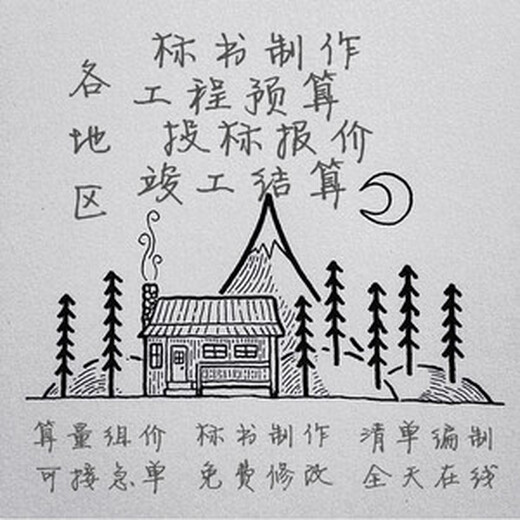 各地区
标书制作
工程预算
投标报价
竣工结算
算量组价 标书制作 清单编制
可接急单 免费修改 全天在线